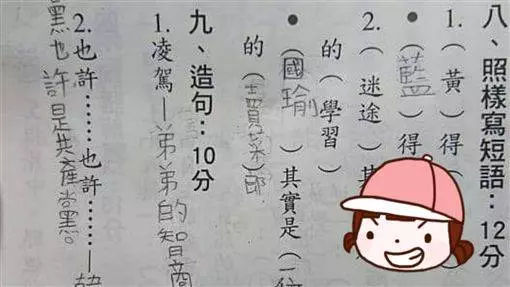 八、照樣寫短語：12分
1.(黃)得(
●(藍)得(
2.(迷途)其
的(學習)
●(國瑜)其實是(一位
的(賣菜郎)
九、造句：10分
1.凌駕—弟弟的智商
2.也許……也許……—韓
也許是共產黨。